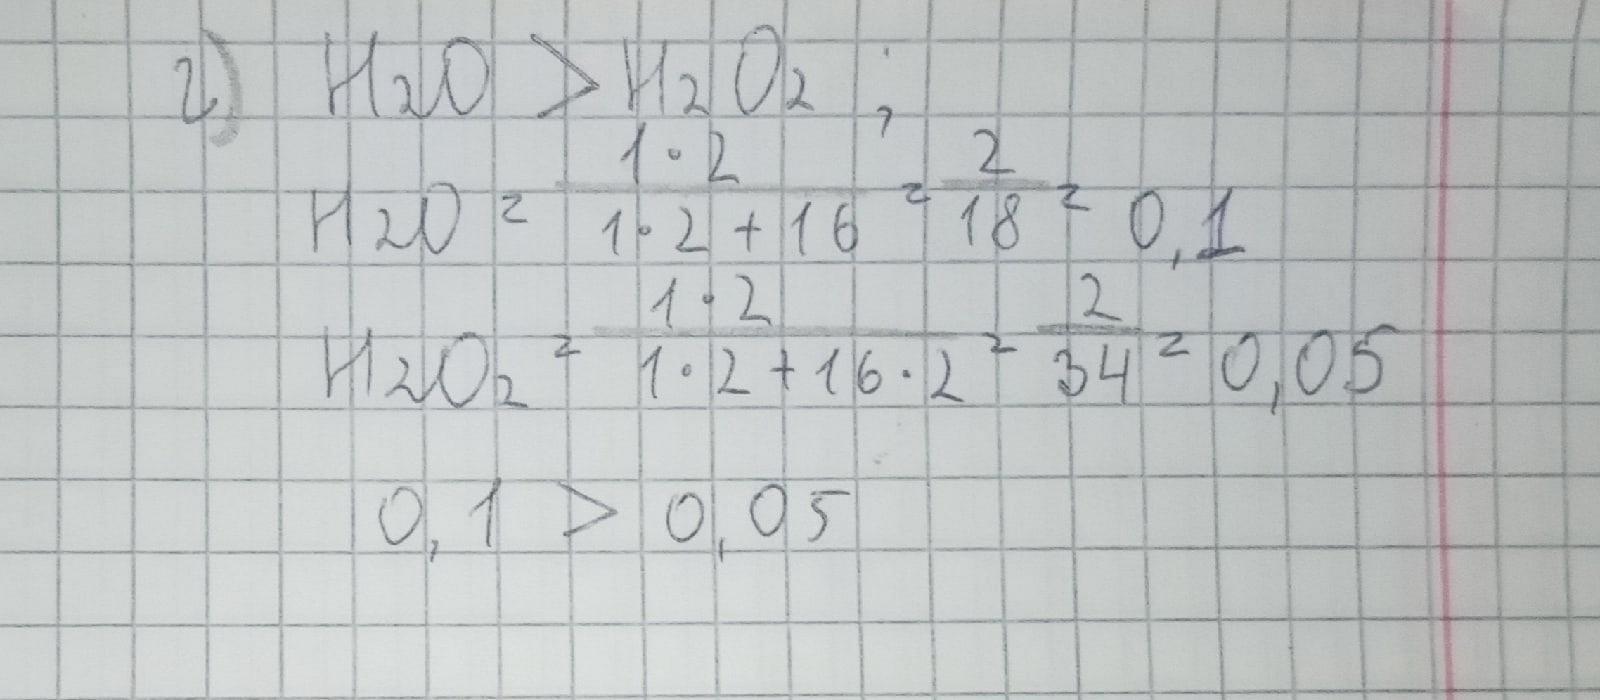 г) H₂O > H₂O₂ ;
H₂O = (1·2)/(1·2+16) = 2/18 = 0,1
H₂O₂ = (1·2)/(1·2+16·2) = 2/34 = 0,05
0,1 > 0,05